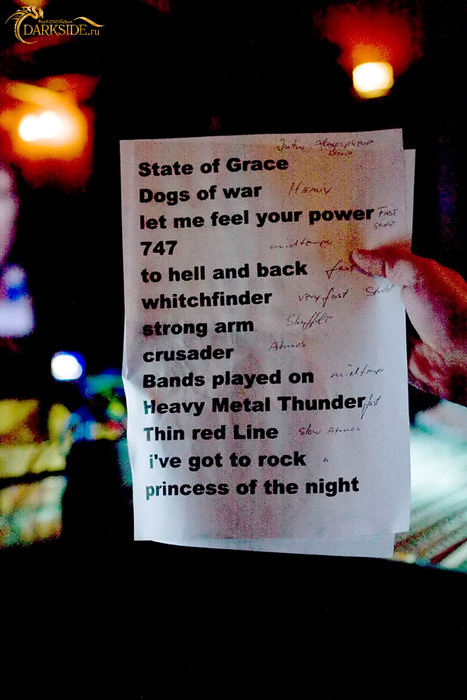 DARKSIDE.ru
Intro Atmosphere
State of Grace
Dogs of war HEAVY
let me feel your power FAST
747 midtempo
to hell and back fast
whitchfinder very fast
strong arm Shuffle
crusader Atmos
Bands played on midtempo
Heavy Metal Thunder fast
Thin red Line Slow Atmos
i've got to rock "
princess of the night